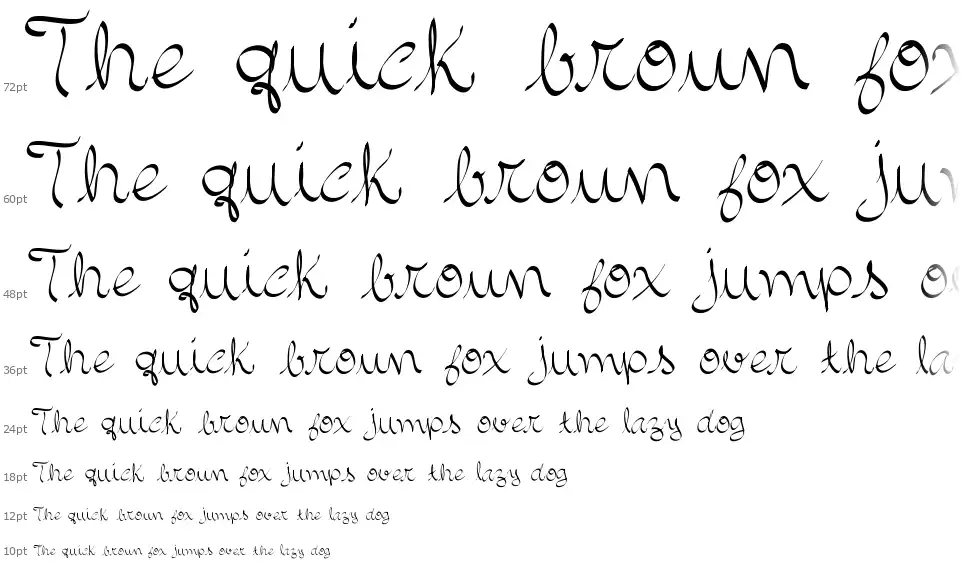 72pt The quick broun fox
60pt The quick broun fox ju
48pt The quick broun fox jumps o
36pt The quick broun fox jumps over the la
24pt The quick broun fox jumps over the lazy dog
18pt The quick broun fox jumps over the lazy dog
12pt The quick broun fox jumps over the lazy dog
10pt The quick broun fox jumps over the lazy dog